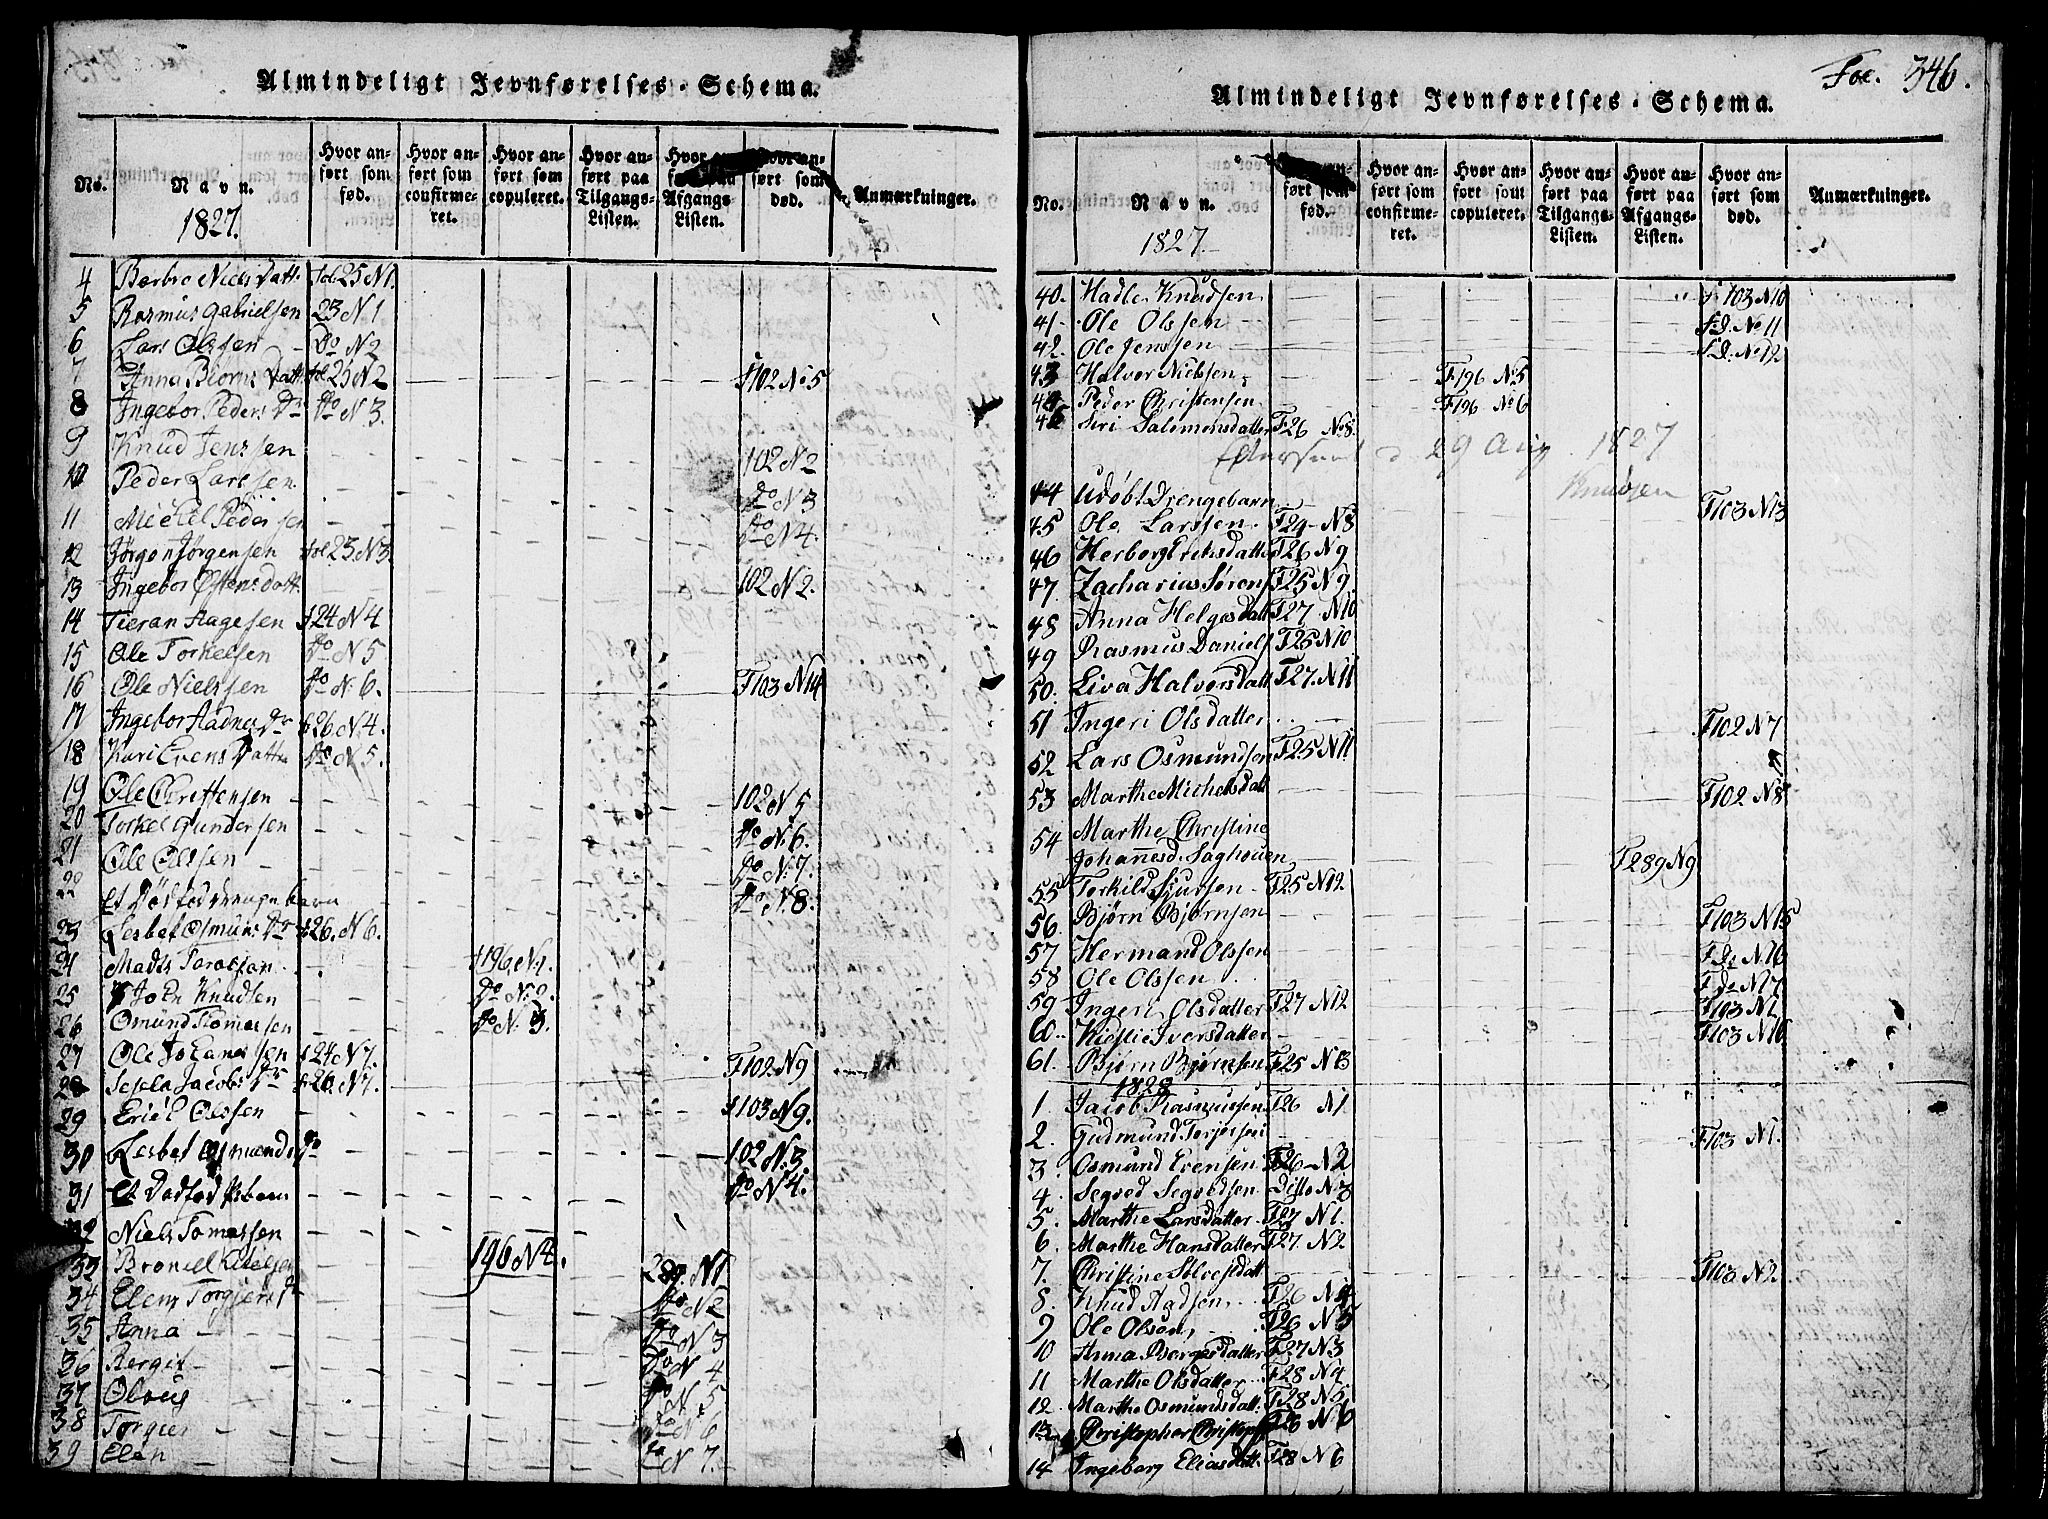 Almindeligt Jevnførelses-Schema.
No.
Navn.
1827.
Hvor an-
ført som
fød.
Hvor an-
ført som
confirme-
ret.
Hvor an-
ført som
copuleret.
Hvor an-
ført paa
Tilgangs-
Listen.
Hvor an-
ført paa
Afgangs-
Listen.
Hvor an-
ført som
død.
Anmærkninger.
4 Berbro Niels Datt fol 25 N1.
5 Rasmus Gabrielsen 23 N1
6 Lars Olssen Do N2
7 Anna Biorns Datt fol 25 N2 f102 No 5
8 Ingebor Peders Dr Do N3.
9 Knud Jenssen 102 N2
10 Peder Larssen Do N3
11 Michel Pedersen Do N4.
12 Jørgen Jørgensen fol 23 N3
13 Ingebor Østens datt. 102 N2.
14 Tieran Aagesen f24 N4
15 Ole Torkelsen Do N5
16 Ole Nielssen Do N.6. F103 N14
17 Ingebor Aadnes Dr f26.N4.
18 Kari Evens Datter Do N5.
19 Ole Christensen 102 N5
20 Torkel Gundersen Do N.6.
21 Ole Olssen Do N.7.
22 et Dødfød drænge barn Do N.8.
23 Lesbet Osmuns Dr f26.N6.
24 Mads Tarassen f196 N.1.
25 John Knudsen Do N.2.
26 Omund Tomassen Do N.3.
27 Ole Johannessen f24 N7. F102 N9
28 Sehla Jacobs Dr f26.N7.
29 Erick Olssen f103 N9.
30 Lesbet Osmunds Do 102 N.3.
31 Et Dødfød Pebarn Do N4.
32 Niels Tomassen
33 Broniel Ketelsen 196 N4. 289 N1
34 Elen Torgiers Dr Do N2
35 Anna Do N3
36 Bergit Do N4
37 Olous Do N5
38 Torgier Do N6
39 Elen Do N7.
Foe. 346.
Almindeligt Jevnførelses-Schema.
No.
Navn.
1827.
ført som
fød.
Hvor an-
ført som
confirme-
ret.
Hvor an-
ført som
copuleret.
Hvor an-
ført paa
Tilgangs-
Listen.
Hvor an-
ført paa
Afgangs-
Listen.
Hvor an-
ført som
død.
Anmærkninger.
40. Hadle Knudsen f103 N10
41. Ole Olssen f.D. No 11
42. Ole Jenssen f.D. No 12
43 Halvor Nielssen F196 No 5
44 Peder Christensen F196 No 6
45 Siri Salomonsdatter F26 No 8.
Efterseet d 29 Aug 1827
Knudsen
44 Udøbt Drengebarn F103 N13
45 Ole Larssen F29-N8
46 Herborg Eriksdatter F26 N9
47. Zacharias Sørens F25 N9.
48 Anna Helgesdatt F27 N10
49 Rasmus Daniels F25 N10
50. Liva Halvorsdatt F27.N11
51 Ingeri Olsdatter F102 N7
52 Lars Osmundsen F25 N11
53 Marthe Michelsdatt F102 N8
54 Marthe Christine
Johannesd. Saghouen F289 N9
55 Torkild Sjursen F25 N12
56. Bjørn Bjørnsen F103 N15
57 Hermand Olssen F.Do N.16
58 Ole Olssen F.Do N17
59 Ingeri Olsdatter F27 N12 F103 N1
60. Kiestie Iversdatter F103 N10
61. Bjørn Bjørnsen F25 N13
1828
1 Jacob Rasmussen F26 N1.
2. Gudmund Torjersen F103 N1.
3 Osmund Evensen F26-N2
4. Segved Segvedsen Ditto N3
5. Marthe Larsdatter F27 N1.
6. Marthe Hansdatter F27. N2
7. Christine Solvesdatt F103 N2
8. Knud Aadsen F26 N4
9 Ole Olson F26 N5
10 Anna Borgesdatter F27 N3
11 Marthe Olsdatter F28 N4
12 Marthe Osmundsdatt F28 N5
13 Christopher Christoph F26 N6
14 Ingeborg Eliasdatt. F28 N6